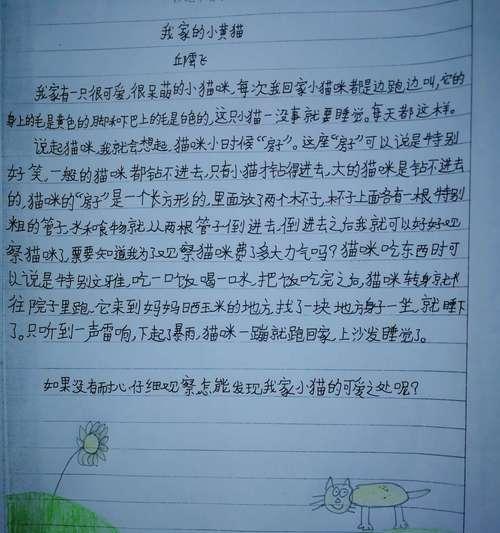 我家的小黄猫
丘雲飞
我家有一只很可爱,很呆萌的小猫咪,每次我回家小猫咪都是边跑边叫,它的
身上的毛是黄色的,脚和下巴上的毛是白色的,这只小猫一没事就要睡觉。每天都这样。
说起猫咪,我就会想起,猫咪小时候“房子”。这座“房子”可以说是特别
好笑,一般的猫咪都钻不进去,只有小猫才钻得进去,大的猫咪是钻不进去
的,猫咪的“房子”是一个长方形的,里面放了两个杯子,杯子上面各有一根特别
粗的管子,水和食物就从两根管子倒进去,倒进去之后我就可以好好观
察猫咪了,要知道我为了观察猫咪费了多大力气吗?猫咪吃东西时可
以说是特别文雅,吃一口饭喝一口水,把饭吃完之后,猫咪转身就
往院子里跑,它来到妈妈晒玉米的地方,找了一块地方身子一坐,就睡下
了。只听到一声雷响,下起了暴雨,猫咪一蹦就跑回家,上沙发睡觉了。
如果没有耐心仔细观察怎能发现我家小猫的可爱之处呢?